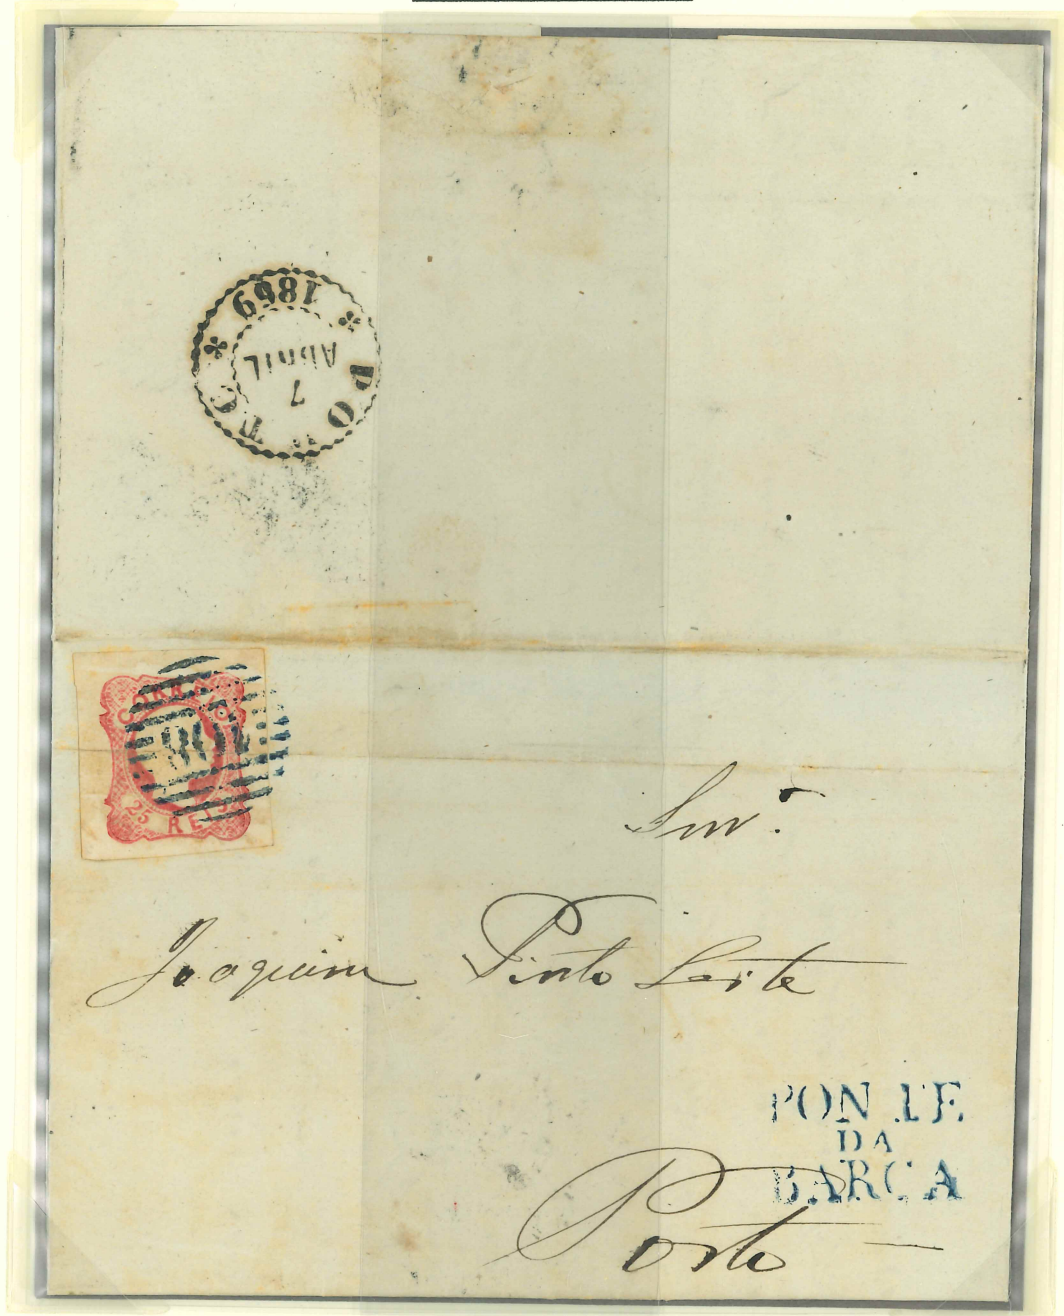 PORTO
7
ABRIL
1869
CORREIO
25 REIS
108
Snr.
Joaquim Pinto Leite
PONTE
DA
BARCA
Porto